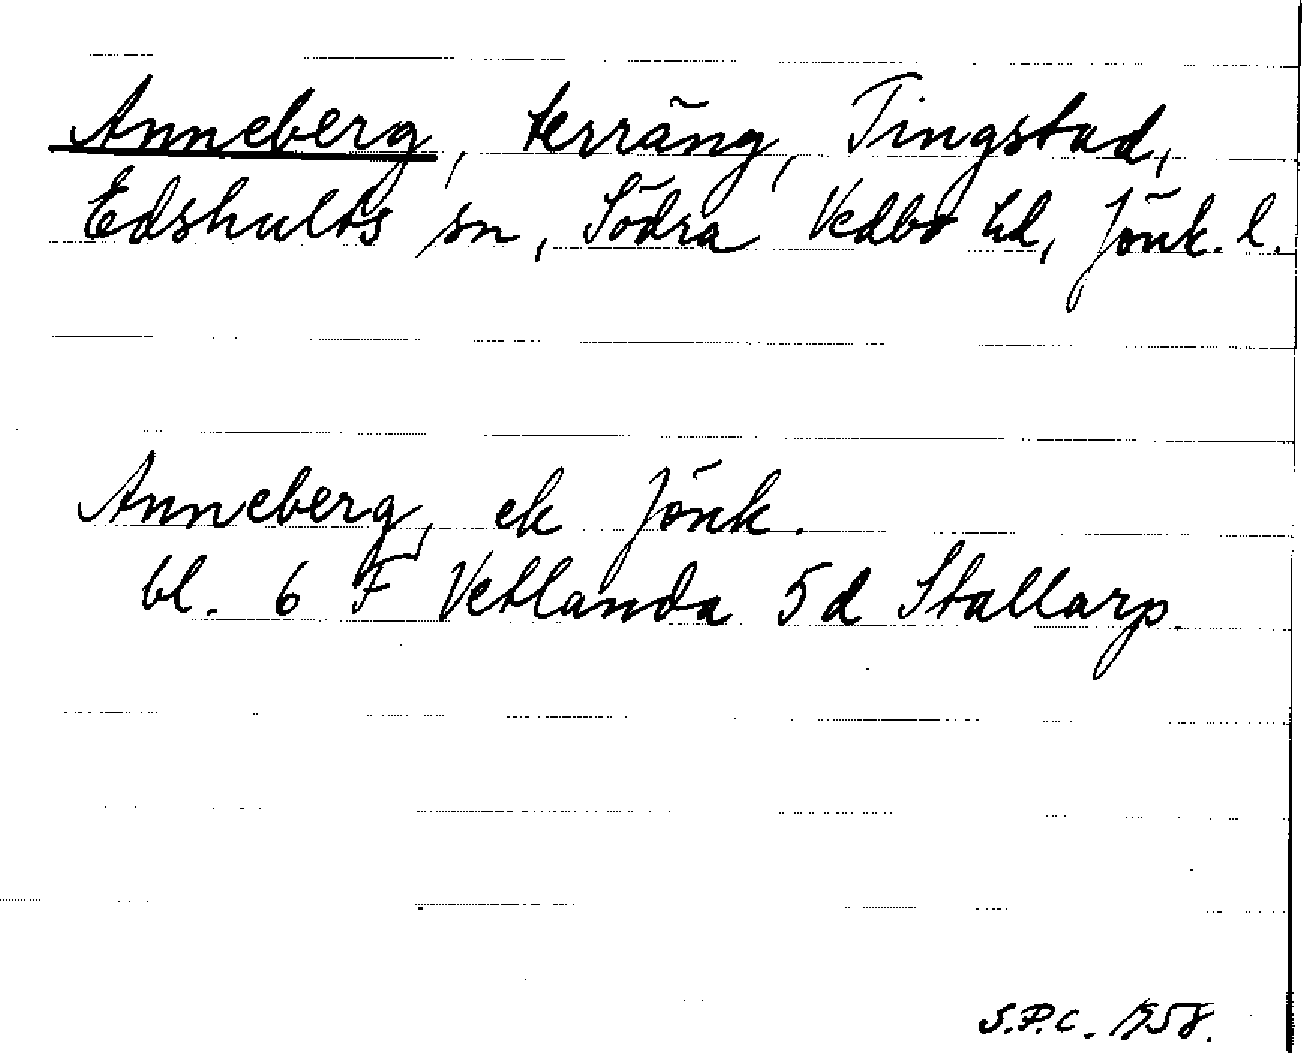 Anneberg, terräng, Tingstad,
Edshults sn, Södra Vedbo hd, Jönk. l.
Anneberg, ek Jönk.
bl. 6 F Vetlanda 5d Stallarp.
S.P.C. 1958.